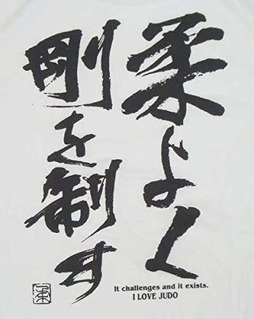 柔よく
剛を制す
It challenges and it exists.
I LOVE JUDO